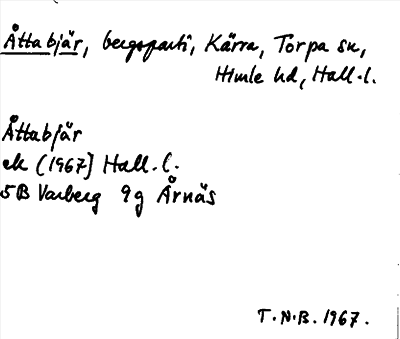 Åttabjär, bergsparti, Kärra, Torpa sn,
Himle hd, Hall. l.
Åttabjär
ek (1967) Hall. l.
5B Varberg 9g Årnäs
T.N.B. 1967.